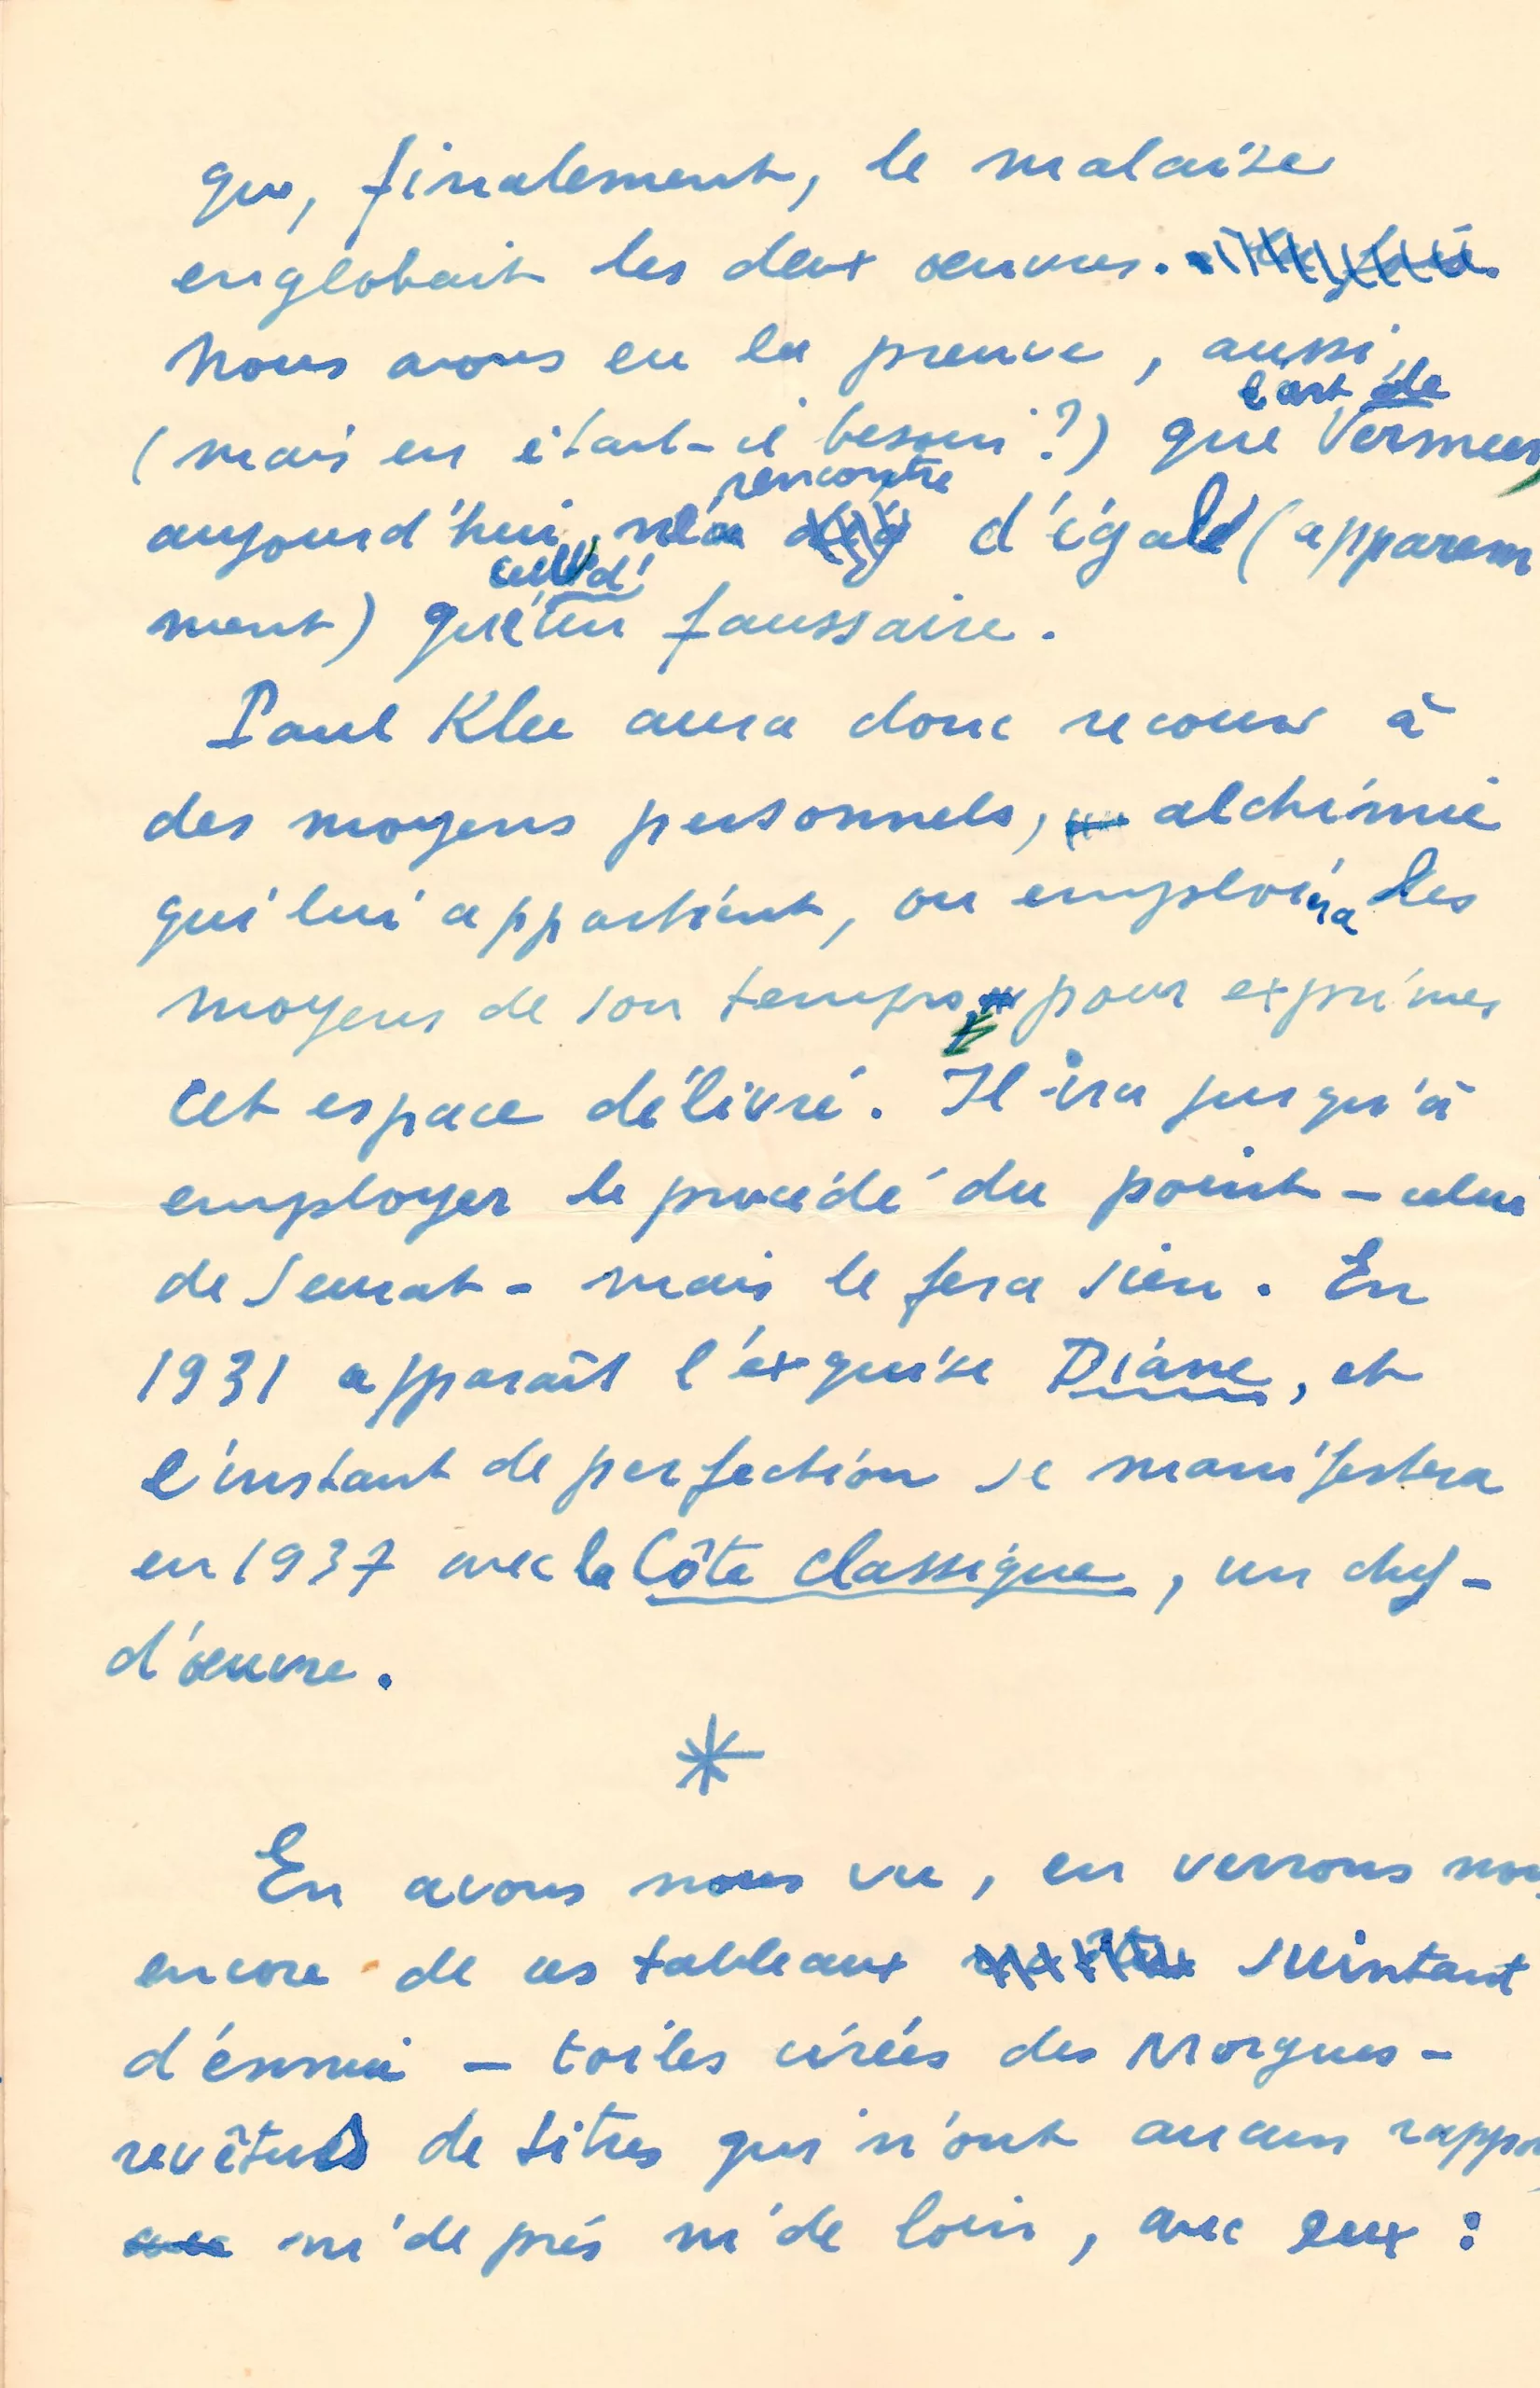 que, finalement, le malaise
englobait les deux œuvres.
Nous avons eu la preuve, aussi,
l'art de
(mais en était-il besoin?) que Vermeer,
rencontré
aujourd'hui, n'a d'égal (apparem
celui d'
ment) qu'un faussaire.
Paul Klee aura donc recours à
des moyens personnels, alchimie
qui lui appartient, ou emploiera les
moyens de son temps pour exprimer
cet espace délivré. Il ira jusqu'à
employer le procédé du point - celui
de Seurat - mais le fera sien. En
1931 apparaît l'exquise Diane, et
l'instant de perfection se manifestera
en 1937 avec la Côte classique, un chef-
d'œuvre.
*
En avons nous vu, en verrons nou
encore de ces tableaux suintant
d'ennui - toiles cirées des Morgues -
revêtus de titres qui n'ont aucun rappo
ni de près ni de loin, avec eux :